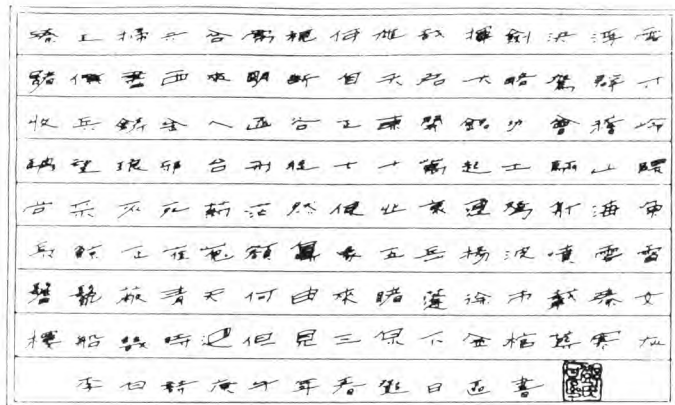 秦王掃六合虎視何雄哉揮劍決浮雲
諸侯盡西來明斷自天啟大略駕群才
收兵鑄金人函谷正東開銘功會稽嶺
騁望琅邪台刑徒七十萬起土驪山隈
尚采不死藥茫然使心哀連弩射海魚
長鯨正崔嵬額鼻象五岳揚波噴雲雷
鬐鬣蔽青天何由來睹蓬徐市載秦女
樓船幾時迴但見三泉下金棺葬寒灰
李白詩庚午年春日書